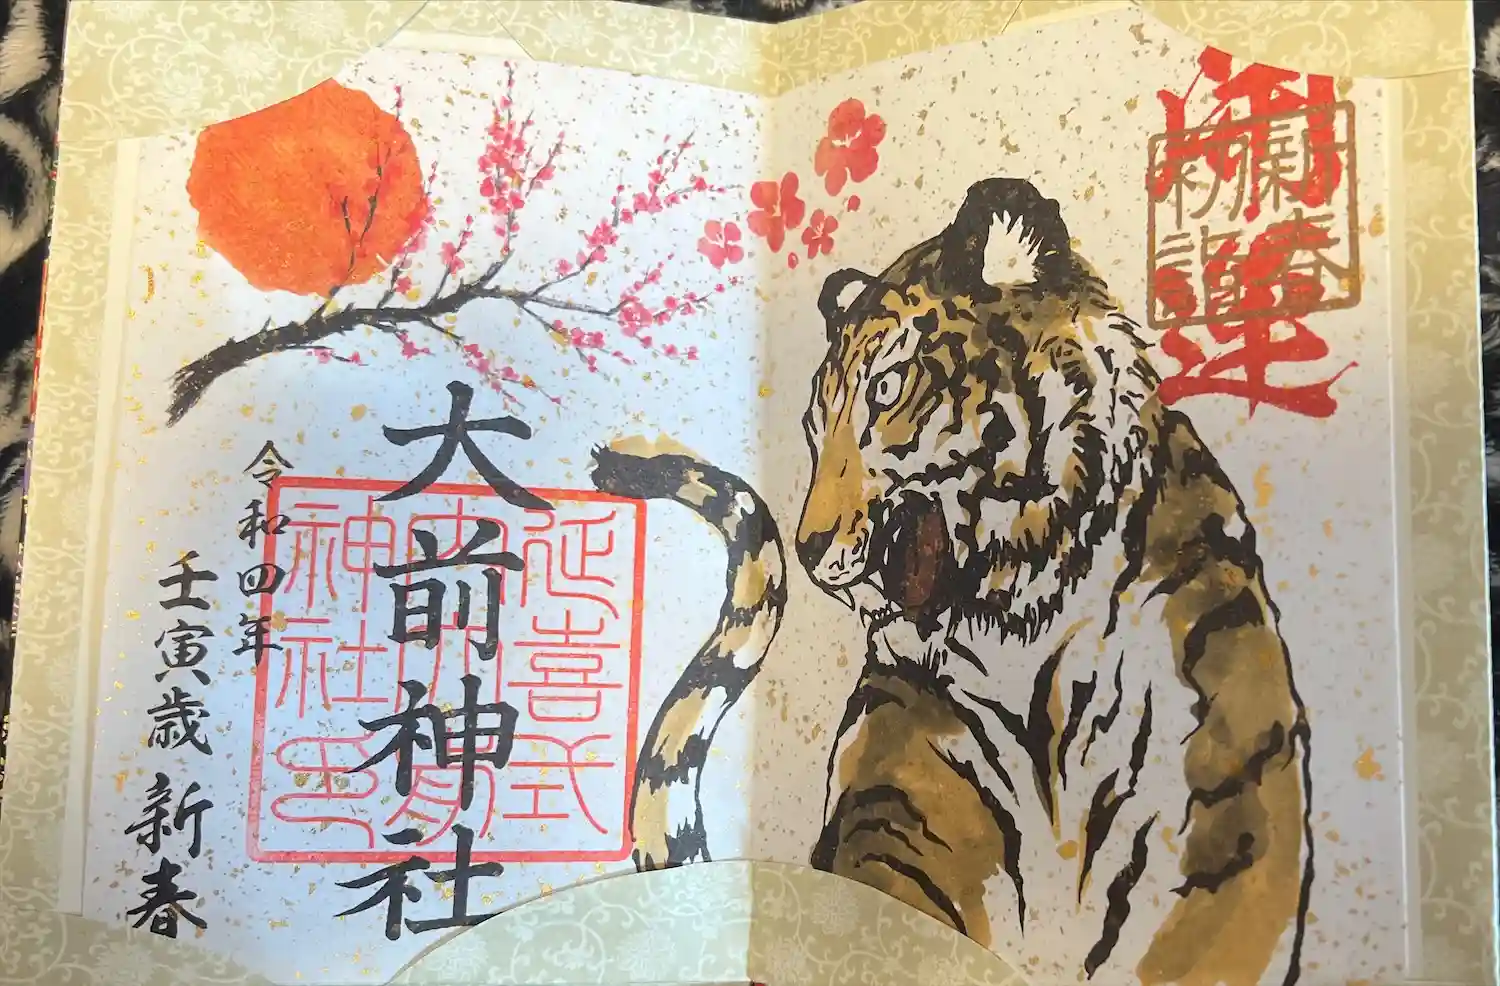 運
新春
初詣
大前神社
延喜式
内大前
神社印
令和四年
壬寅歳 新春